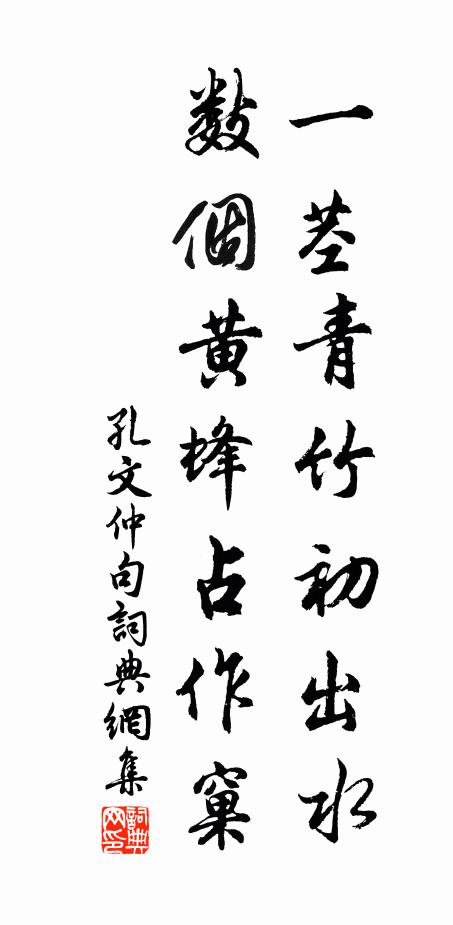 一茎青竹初出水
数個黄蜂占作窠
孔文仲句詞典網集
詞典网印